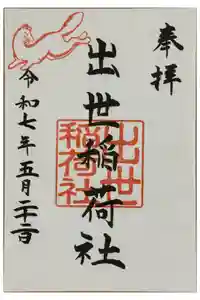 奉拝
出世稲荷社
出世
稲荷社
令和七年五月二十二日